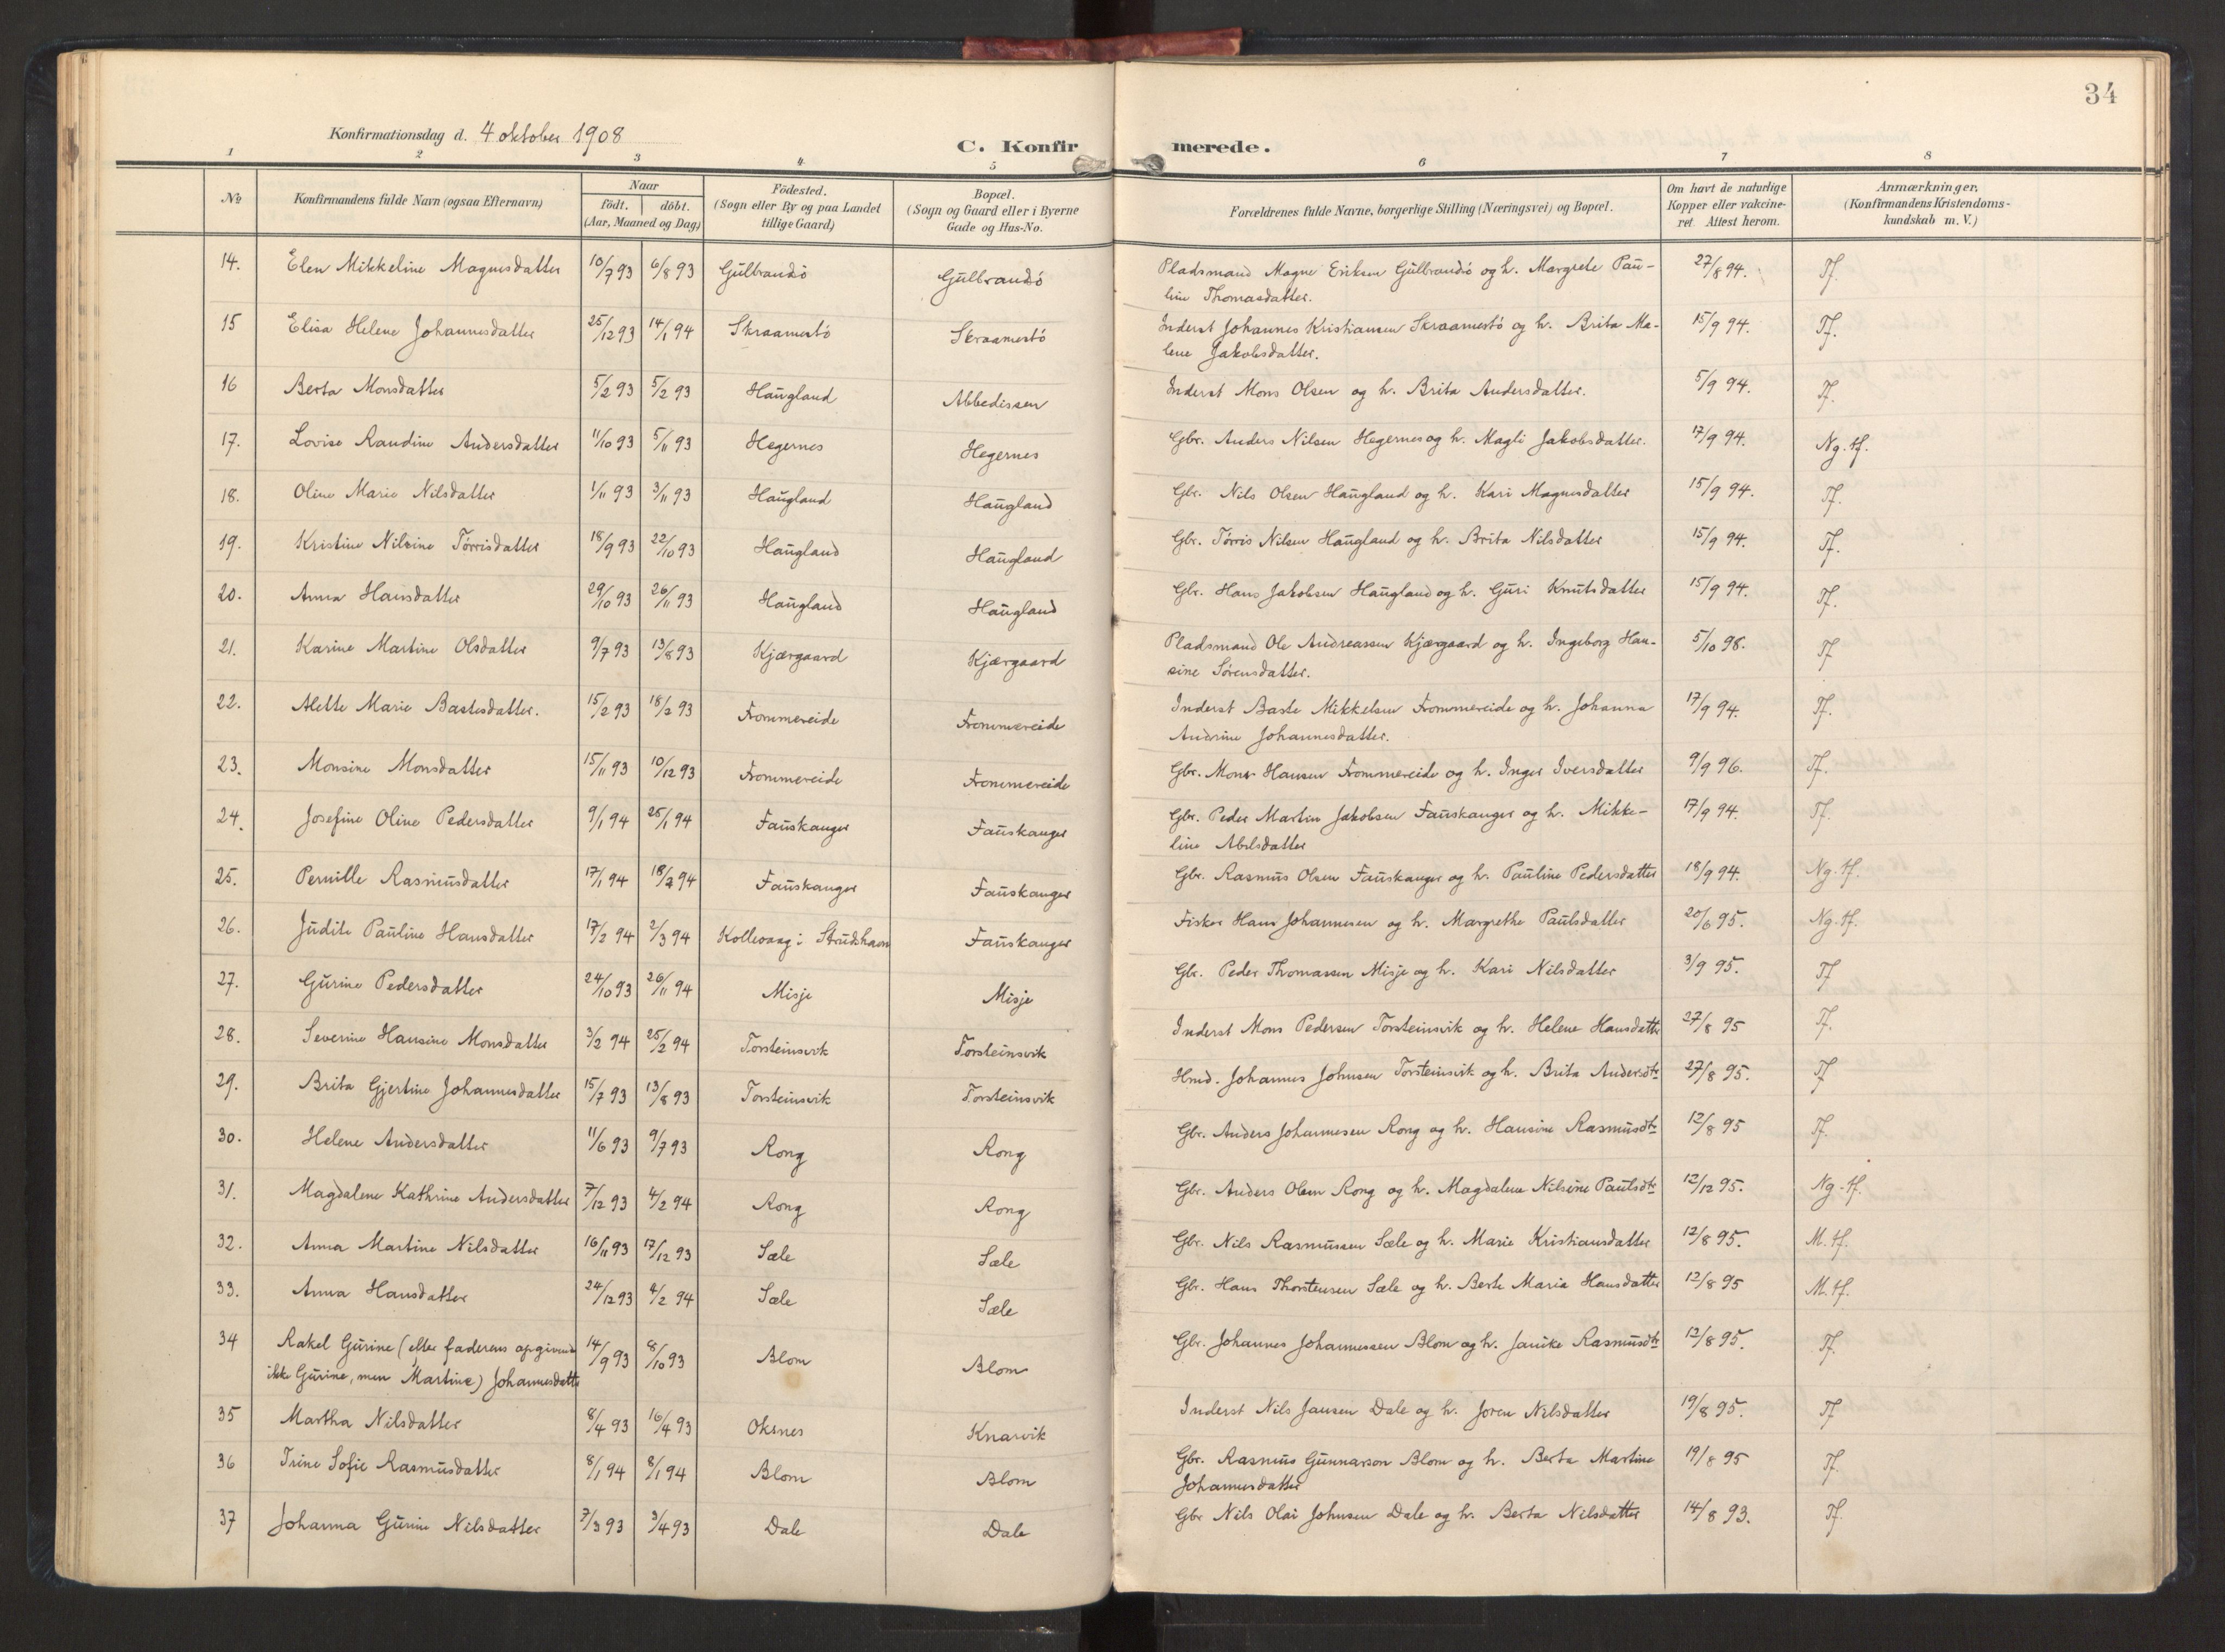 34
Konfirmationsdag d. 4 oktober 1908
C. Konfirmerede.
1 2 3 4 5 6 7 8
No
Konfirmandens fulde Navn (ogsaa Efternavn)
Naar
födt. döbt.
(Aar, Maaned og Dag)
Födested.
(Sogn eller By og paa Landet
tillige Gaard)
Bopæl.
(Sogn og Gaard eller i Byerne
Gade og Hus-No.
Forældrenes fulde Navne, borgerlige Stilling (Næringsvei) og Bopæl.
Om havt de naturlige
Kopper eller vakcine-
ret. Attest herom.
Anmærkninger,
(Konfirmandens Kristendoms-
kundskab m. V.)
14. Elen Mikkeline Magnesdatter 10/7 93 6/8 93 Gülbrandsö Gülbrandsö Pladsmand Magne Eriksen Gülbrandsö og h. Margrete Pau- 27/8 94. Tf.
line Thomasdatter.
15 Elisa Helene Johannesdatter 25/12 93 14/1 94 Skraamestö Skraamestö Inderst Johannes Kristiansen Skraamestö og h. Brita Ma- 15/9 94. Tf.
lene Jakobsdatter.
16 Berta Monsdatter 5/2 93 5/2 93 Haugland Abbedissen Inderst Mons Olsen og h. Brita Andersdatter. 5/9 94. Tf.
17. Lovise Randine Andersdatter 11/10 93 5/11 93 Hegernes Hegernes Gbr. Anders Nilsen Hegernes og h. Magli Jakobsdatter. 17/9 94. Ng. tf.
18. Oline Marie Nilsdatter 1/11 93 3/11 93 Haugland Haugland Gbr. Nils Olsen Haugland og h. Kari Magnesdatter 15/9 94. Tf.
19. Kristine Nilsine Törrisdatter 18/9 93 22/10 93 Haugland Haugland Gbr. Törris Nilsen Haugland og h. Brita Nilsdatter 15/9 94. Tf.
20. Anna Hansdatter 29/10 93 26/11 93 Haugland Haugland Gbr. Hans Jakobsen Haugland og h. Guri Knutsdatter 15/9 94. Tf.
21. Karine Martine Olsdatter 9/7 93 13/8 93 Kjærgaard Kjærgaard Pladsmand Ole Andreassen Kjærgaard og h. Ingeborg Han- 5/10 98. Tf
sine Sörensdatter.
22. Alette Marie Bastesdatter. 15/2 93 18/2 93 Frommereide Frommereide Inderst Baste Mikkelsen Frommereide og h. Johanna 17/9 94. Tf.
Andrine Johannesdatter.
23. Monsine Monsdatter 15/11 93 10/12 93 Frommereide Frommereide Gbr. Mons Hansen Frommereide og h. Inger Iversdatter 9/9 96. Tf.
24. Josefine Oline Pedersdatter 9/1 94 25/1 94 Fauskanger Fauskanger Gbr. Peder Martin Jakobsen Fauskanger og h. Mikke- 17/9 94. Tf.
line Abelsdatter
25. Pernille Rasmusdatter 17/1 94 18/2 94 Fauskanger Fauskanger Gbr. Rasmus Olsen Fauskanger og h. Pauline Pedersdatter 18/9 94. Ng. tf.
26. Judite Pauline Hansdatter 17/2 94 2/3 94 Kollevaag i Strudshavn Fauskanger Fisker Hans Johannesen og h. Margrethe Paulsdatter 20/6 95. Ng. tf.
27. Gurine Pedersdatter 24/10 93 26/11 94 Misje Misje Gbr. Peder Thomassen Misje og h. Kari Nilsdatter 3/9 95. Tf
28. Severine Hansine Monsdatter 3/2 94 25/2 94 Torsteinsvik Torsteinsvik Inderst Mons Pedersen Torsteinsvik og h. Helene Hansdatte 27/8 95 Tf.
29. Brita Gjertine Johannesdatter 15/7 93 13/8 93 Torsteinsvik Torsteinsvik Hmd. Johannes Johnsen Torsteinsvik og h. Brita Andersdtr 27/8 95. Tf
30. Helene Andersdatter 11/6 93 9/7 93 Rong Rong Gbr. Anders Johannesen Rong og h. Hansine Rasmusdtr 12/8 95 Tf.
31. Magdalene Kathrine Andersdatter 7/12 93 4/2 94 Rong Rong Gbr. Anders Olsen Rong og h. Magdalene Nilsine Paulsdtr 12/12 95. Ng. tf.
32. Anna Martine Nilsdatter 16/11 93 17/12 93 Sæle Sæle Gbr. Nils Rasmussen Sæle og h. Marie Kristiansdatter 12/8 95. M. tf.
33. Anna Hansdatter 24/12 93 4/2 94 Sæle Sæle Gbr. Hans Thorstensen Sæle og h. Berte Maria Hansdatter 12/8 95 M. tf.
34 Rakel Gurine (efter faderens opgivende 14/9 93 8/10 93 Blom Blom Gbr. Johannes Johannessen Blom og h. Janike Rasmusdtr 12/8 95. Tf.
ikke Gurine, men Martine) Johannesdatte
35 Martha Nilsdatter 8/4 93 16/4 93 Oksnes Knarvik Inderst Nils Jansen Dale og h. Joren Nilsdatter 19/8 95. Tf
36 Trine Sofie Rasmusdatter 8/1 94 8/1 94 Blom Blom Gbr. Rasmus Gunnarson Blom og h. Berta Martine 19/8 95 Tf.
Johannesdatter
37 Johanna Gurine Nilsdatter 7/3 93 3/4 93 Dale Dale Gbr Nils Olai Johnsen Dale og h. Berta Nilsdatter 14/8 93. Tf.